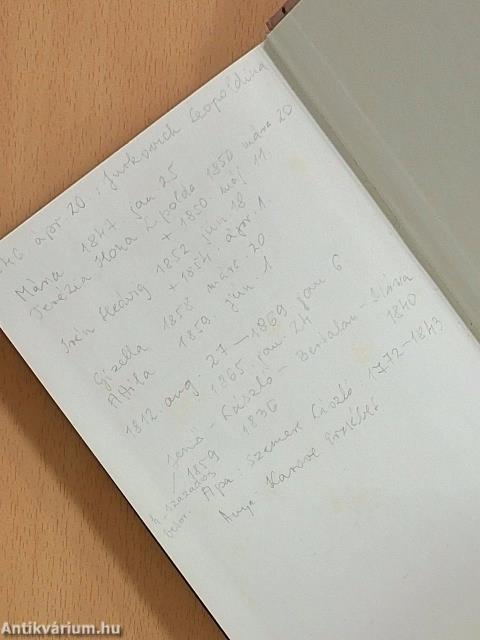 46 ápr. 20. Jurkovich Leopoldina
Mária 1847 jan 25
Terézia Ilona Lipolda 1850 márc 20
+ 1850 máj 11.
Irén Hedvig 1852 jún 18
+ 1854 ápr. 1.
Gizella 1858 márc. 20
Attila 1859. jún 1
1812. aug. 27 — 1869 jan 6
1865. jan. 24
Jenő - László - Bertalan - Mária
1859 1836 1840
h. százados
Apa: Szemere László 1772-1843
Anya: Karove Erzsébet
Antikvárium.hu